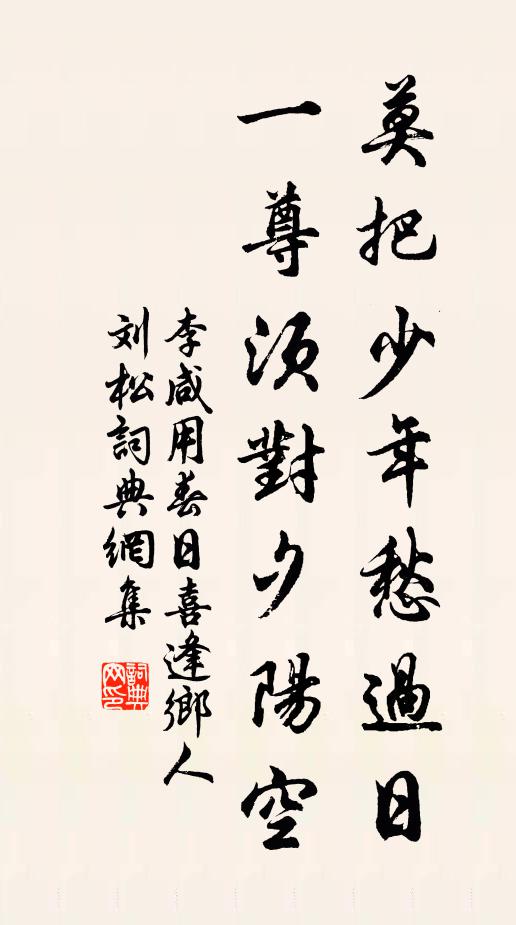 莫把少年愁過日
一尊須對夕陽空
李咸用春日喜逢鄉人
刘松詞典網集
詞典网印